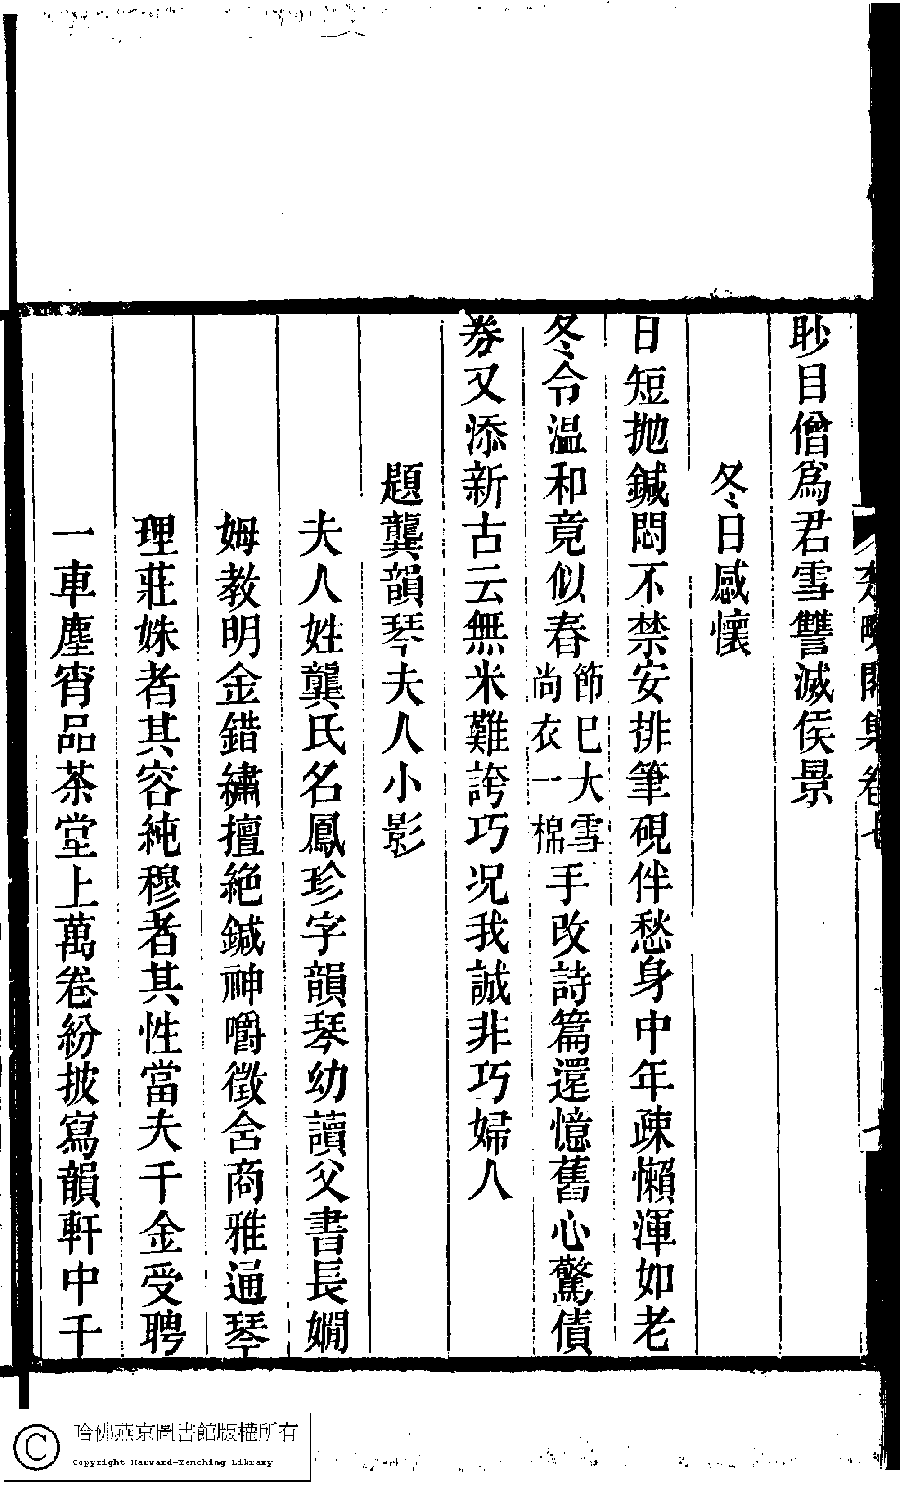 楚畹閣集卷七
七
眇目僧爲君雪讐滅侯景
冬日感懷
日短拋鍼悶不禁安排筆硯伴愁身中年疎懶渾如老
冬令溫和竟似春節巳大雪尚衣一棉手改詩篇還憶舊心驚債
券又添新古云無米難誇巧况我誠非巧婦人
題龔韻琴夫人小影
夫人姓龔氏名鳳珍字韻琴幼讀父書長嫺
姆教明金錯繡擅絕鍼神嚼徵含商雅通琴
理莊姝者其容純穆者其性當夫千金受聘
一車塵宵品茶堂上萬卷紛披寫韻軒中千
哈佛燕京圖書館版權所有
Copyright Harvard-Yenching Library